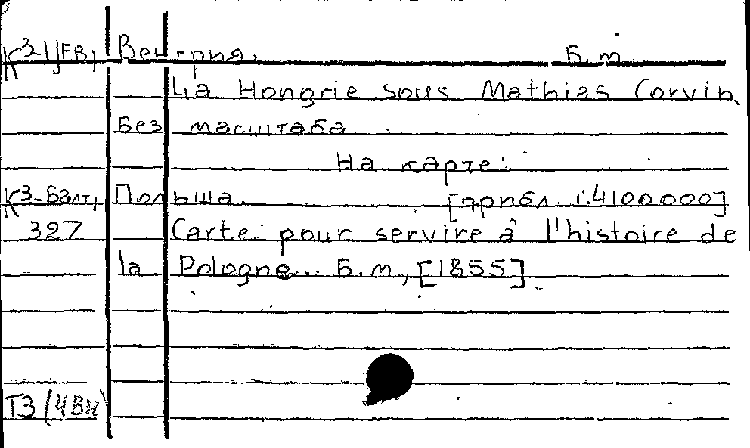 Венгрия. Б.м.
La Hongrie sous Mathias Corvin.
Без масштаба
На карте:
К3-Балт, Польша [прибл. 1:4100000]
327 Carte pour servire à l'histoire de
la Pologne... Б.м., [1855].